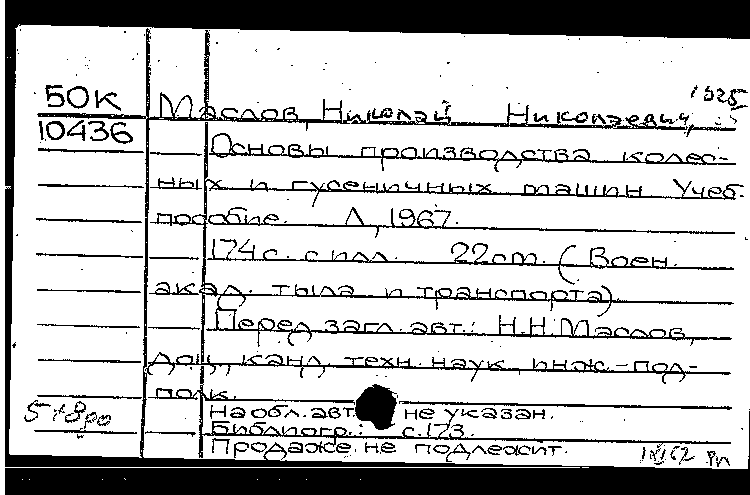 1925
50К Маслов, Николай Николаевич,
10436
Основы производства колес-
ных и гусеничных машин Учеб.
пособие. Л, 1967.
174с. с илл. 22cm. (Воен.
акад. тыла и транспорта).
Перед загл. авт.: Н.Н.Маслов,
доц, канд. техн. наук, инж.-под-
полк.
На обл. авт не указан.
Библиогр.: с.173.
Продаже не подлежит.